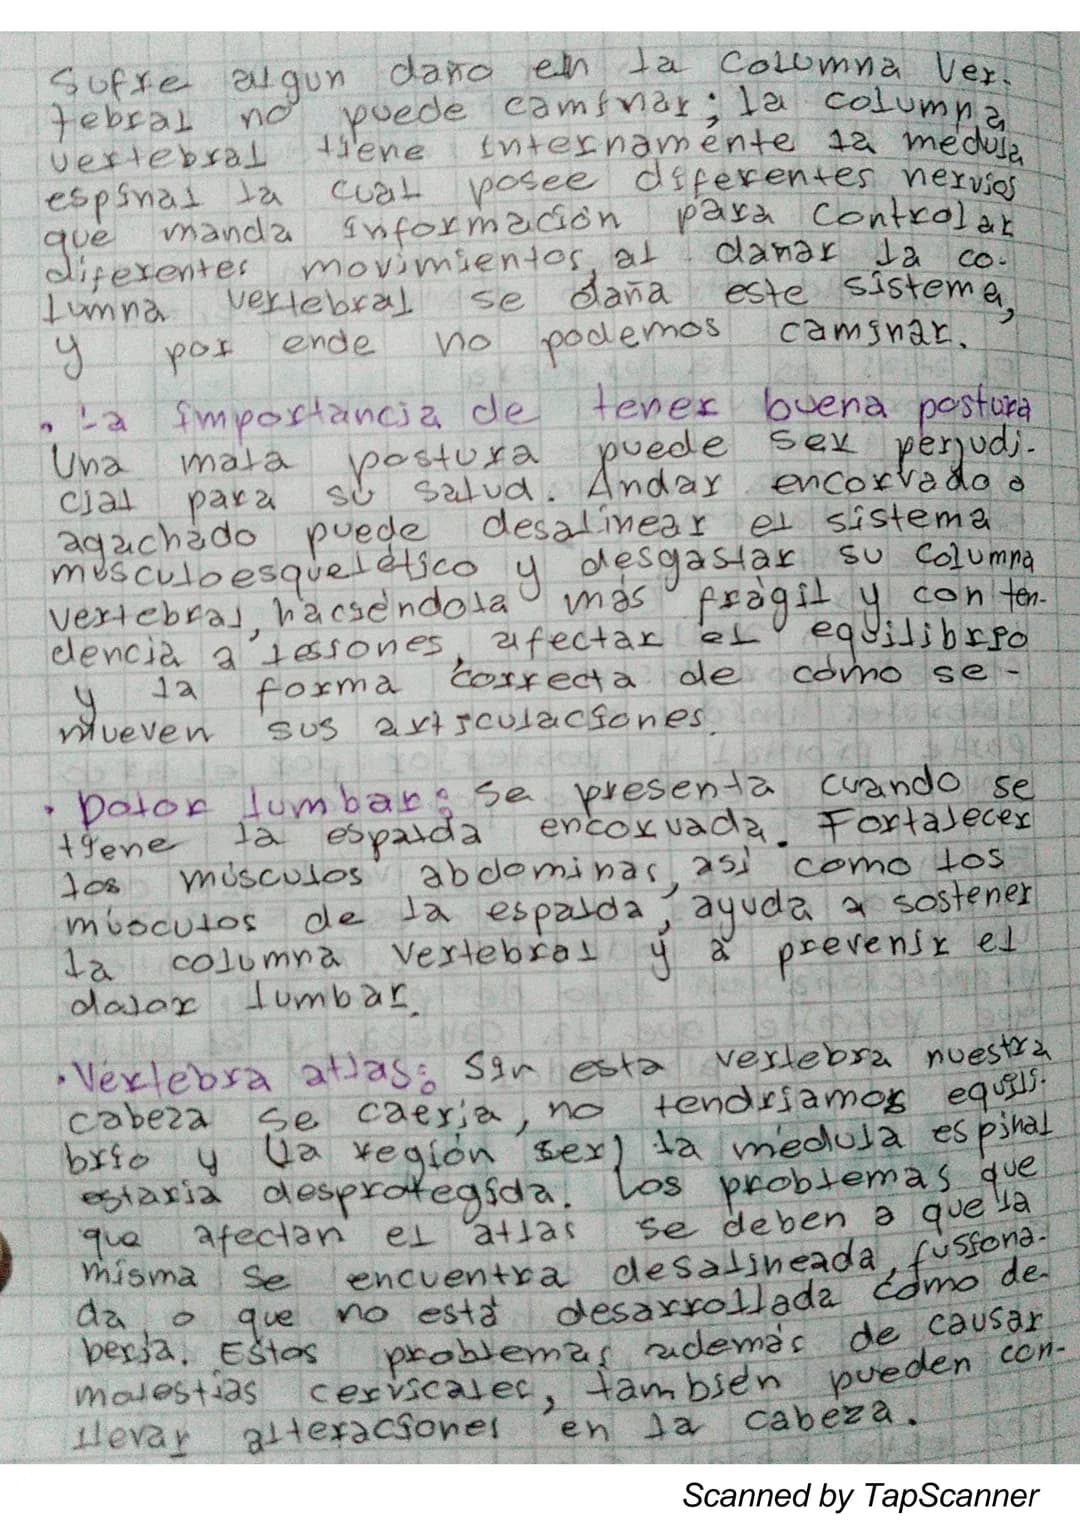 Sufre algun daño en la columna ver-
tebral no puede caminar; la columna
vertebral tiene internamente la medula
espinal la cual posee diferentes nervios
que manda información para controlar
diferentes movimientos, al danar la co-
lumna vertebral se daña este sistema,
y por ende no podemos caminar.
• La importancia de tener buena postura
Una mala postura puede ser perjudi-
cial para su salud. Andar encorvado o
agachado puede desalinear el sistema
musculoesquelético y desgastar su columna
vertebral, haciéndola más frágil y con ten-
dencia a lesiones, afectar el equilibrio
y la forma correcta de cómo se-
mueven sus articulaciones.
• Dolor lumbar: Se presenta cuando se
tiene la espalda encorvada. Fortalecer
los músculos abdominas, asi como los
músculos de la espalda, ayuda a sostener
la columna vertebral y a prevenir el
dolor lumbar.
• Vertebra atlas: Sin esta vertebra nuestra
cabeza se caeria, no tendriamos equili-
brio y la región ser) la médula espinal
estaria desprotegida. Los problemas que
que afectan el atlas se deben a que la
misma se encuentra desalineada, fusiona-
da o que no está desarrollada como de-
beria. Estos problemas además de causar
molestias cervicales, tambien pueden con-
llevar alteraciones en la cabeza.
Scanned by TapScanner